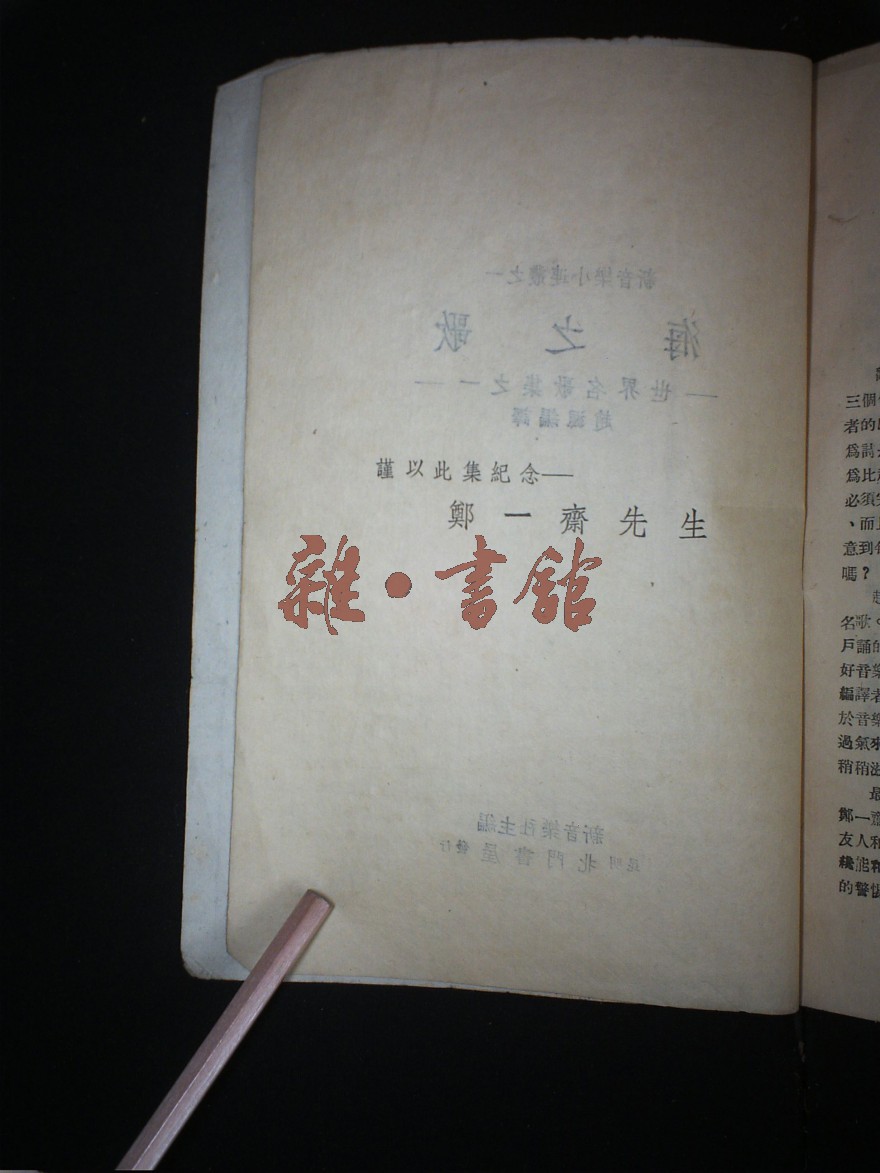 新音樂小連叢之一
海之歌
—世界名歌集之一—
趙渢編譯
謹以此集紀念—
鄭一齋先生
雜•書館
新音樂社主編
昆明北門書屋發行
三個
者的
爲詩
爲比
必須
、而且
意到
嗎？
名歌
戶誦的
好音樂
編譯者
於音樂
過氣來
稍稍
最
鄭一齋
友人和
纔能
的警惕